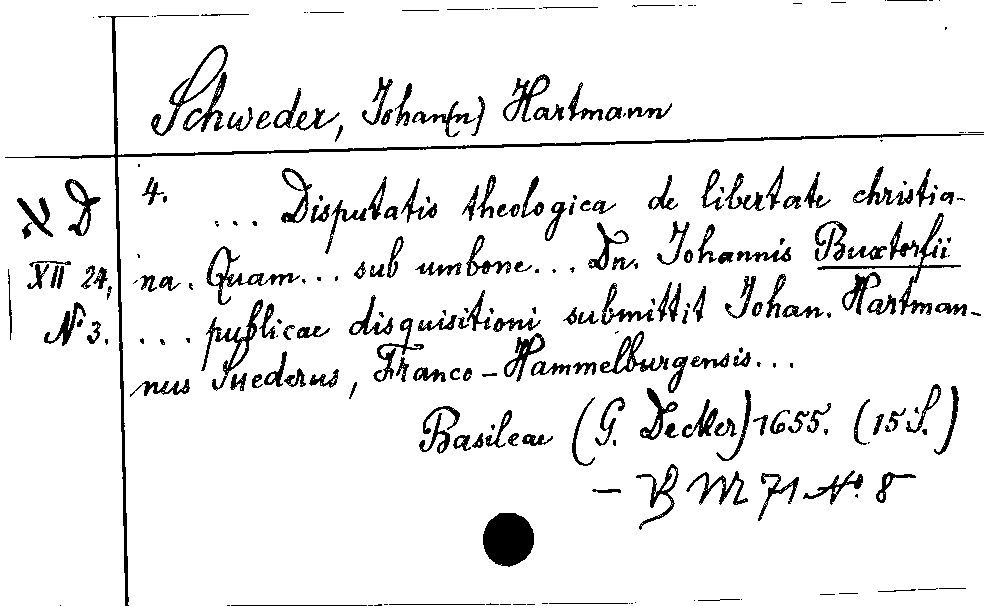 Schweder, Johan(n) Hartmann
א D
XII 24,
N° 3.
4.
... Disputatio theologica de libertate christia-
na. Quam... sub umbone... Dn. Johannis Buxtorfii
... publicae disquisitioni submittit Johan. Hartman-
nus Suederus, Franco-Hammelburgensis...
Basileae (G. Decker) 1655. (15 S.)
– VB M 71 N° 8